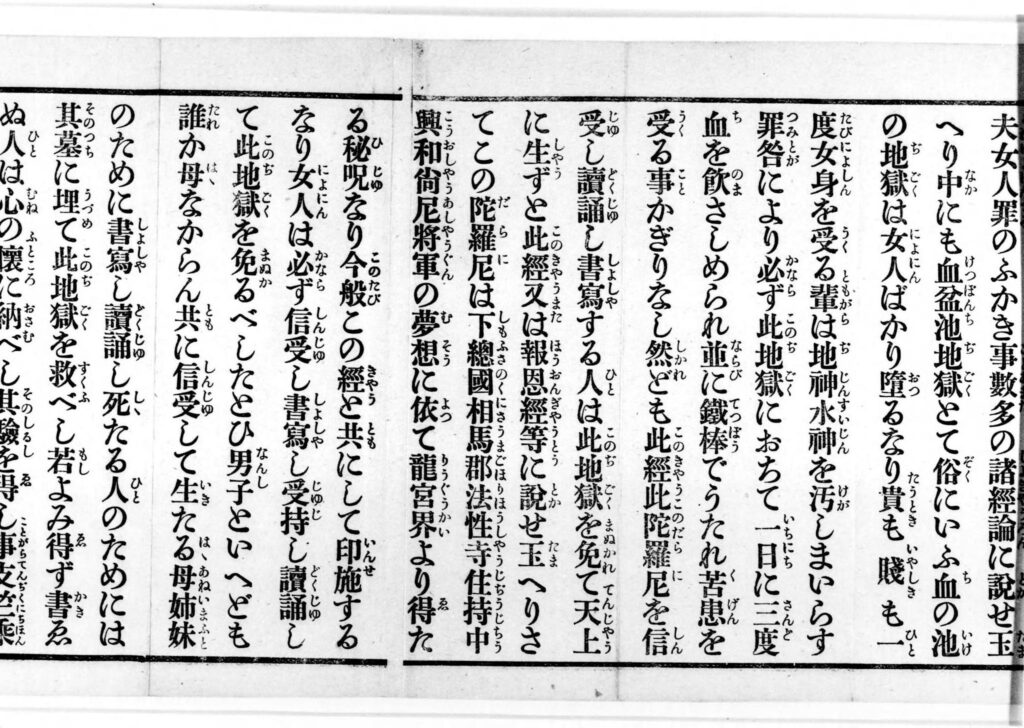 夫女人罪のふかき事數多の諸經論に說せ玉
へり中にも血盆池地獄とて俗にいふ血の池
の地獄は女人ばかり墮るなり貴も賤も一
度女身を受る輩は地神水神を汚しまいらす
罪咎により必ず此地獄におちて一日に三度
血を飮さしめられ並に鐵棒でうたれ苦患を
受る事かぎりなし然ども此經此陀羅尼を信
受し讀誦し書寫する人は此地獄を免て天上
に生ずと此經又は報恩經等に說せ玉へりさ
てこの陀羅尼は下總國相馬郡法性寺住持中
興和尙尼將軍の夢想に依て龍宮界より得た
る秘呪なり今般この經と共にして印施する
なり女人は必ず信受し書寫し受持し讀誦し
て此地獄を免るべしたとひ男子といへども
誰か母なからん共に信受して生たる母姉妹
のために書寫し讀誦し死たる人のためには
其墓に埋て此地獄を救べし若よみ得ず書ゑ
ぬ人は心の懷に納べし其驗を得し事支竺乘